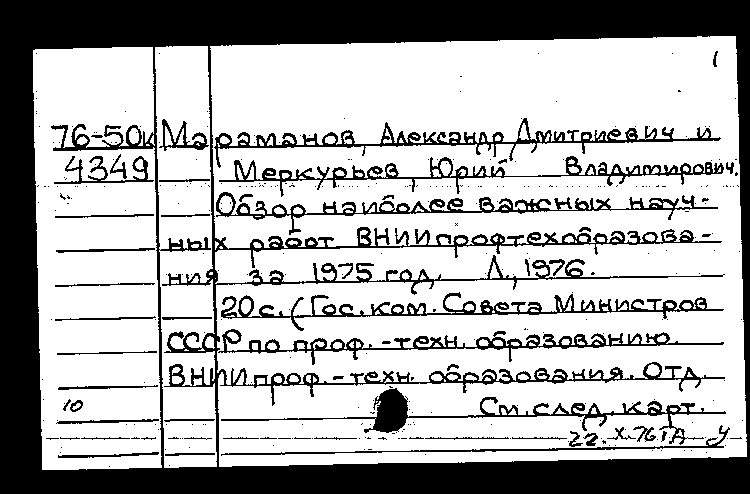 1
76-50к Мараманов, Александр Дмитриевич и
4349 Меркурьев, Юрий Владимирович.
Обзор наиболее важных науч-
ных работ ВНИИпрофтехобразова-
ния за 1975 год. Л., 1976.
20 с. (Гос. ком. Совета Министров
СССР по проф.-техн. образованию.
ВНИИ проф.-техн. образования. Отд.
10 См. след. карт.
22. X-76 ТА У